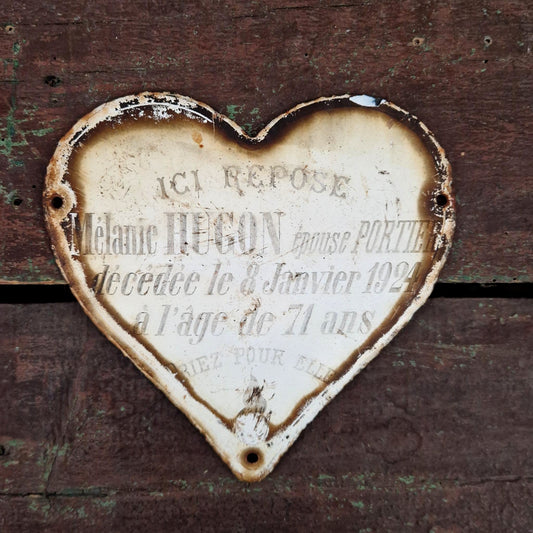 ICI REPOSE
Mélanie HUGON épouse PORTIER
décédée le 8 Janvier 1924
à l'âge de 71 ans
PRIEZ POUR ELLE